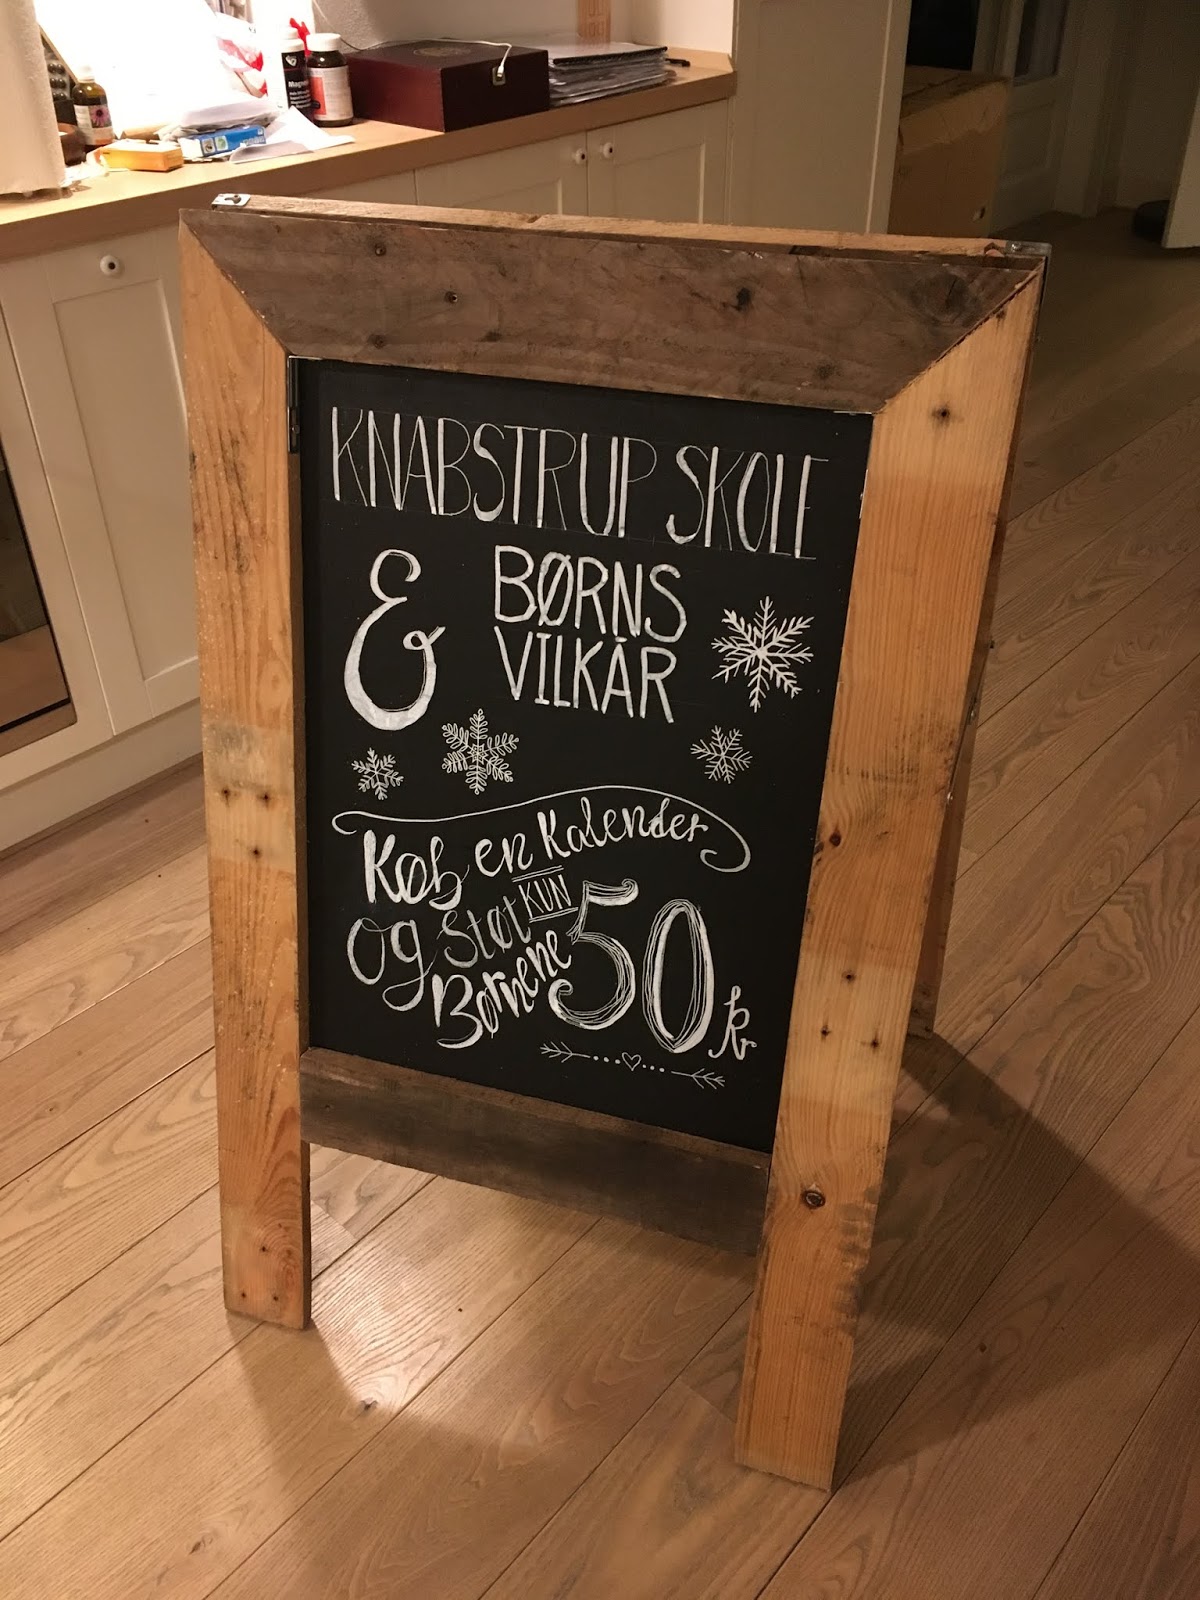 KNABSTRUP SKOLE
&
BØRNS
VILKÅR
Køb en Kalender
og støt
Børnene
KUN
50 kr
Magnesium